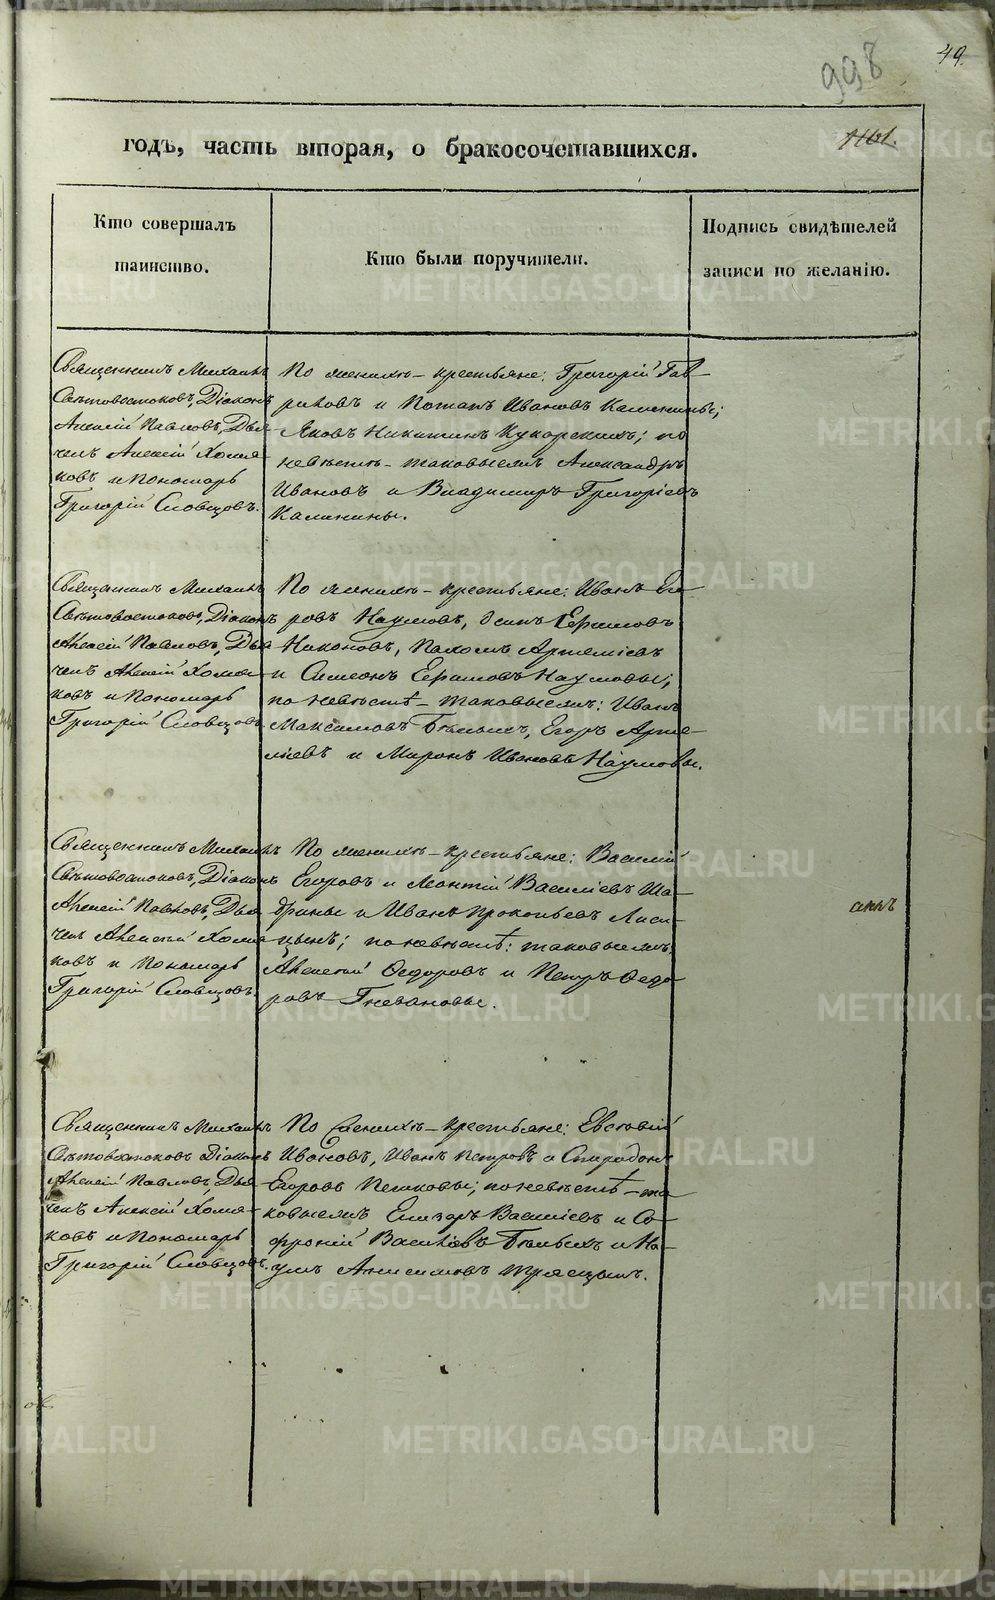 49.
998
1161.
годъ, часть вторая, о бракосочетавшихся.
Кто совершалъ
таинство.
Кто были поручители.
Подпись свидѣтелей
записи по желанію.
Священникъ Михаилъ
Свѣтовостоковъ, Діаконъ
Алексій Павловъ, Дья-
чекъ Алексій Хомя-
ковъ и Пономарь
Григорій Словцовъ.
По женихѣ – крестьяне: Григорій Гав-
риловъ и Потапъ Ивановъ Калинины;
Яковъ Никитинъ Кукарскихъ; по
невѣстѣ – таковыежъ Александръ
Ивановъ и Владимиръ Григоріевъ
Калинины.
Священникъ Михаилъ
Свѣтовостоковъ, Діаконъ
Алексій Павловъ, Дья-
чекъ Алексій Хомя-
ковъ и Пономарь
Григорій Словцовъ.
По женихѣ – крестьяне: Иванъ Его-
ровъ Наумовъ, Осипъ Ефимовъ
Никоновъ, Пахомъ Артеміевъ
и Симеонъ Ефимовъ Наумовы;
по невѣстѣ – таковыежъ: Иванъ
Максимовъ Бѣлыхъ, Егоръ Арте-
міевъ и Миронъ Ивановъ Наумовы.
Священникъ Михаилъ
Свѣтовостоковъ, Діаконъ
Алексій Павловъ, Дья-
чекъ Алексій Хомя-
ковъ и Пономарь
Григорій Словцовъ.
По женихѣ – крестьяне: Василій
Егоровъ и Леонтій Василіевъ Ша-
брины и Иванъ Прокопьевъ Лиси-
цынъ; по невѣстѣ: таковыежъ
Алексій Ѳедоровъ и Петръ Ѳедо-
ровъ Гневановы.
Священникъ Михаилъ
Свѣтовостоковъ Діаконъ
Алексій Павловъ, Дья-
чекъ Алексій Хомя-
ковъ и Пономарь
Григорій Словцовъ.
По женихѣ – крестьяне: Евсевій
Ивановъ, Иванъ Петровъ и Спиридонъ
Егоровъ Пешковы; по невѣстѣ – та-
ковыежъ Елизаръ Василіевъ и Со-
фроній Василіевъ Бѣлыхъ и На-
умъ Анисимовъ Трясцынъ.
METRIKI.GASO-URAL.RU